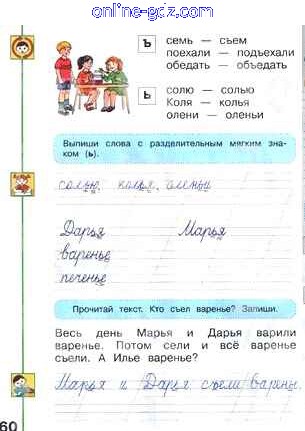 online-gdz.com
ъ
семь — съем
поехали — подъехали
обедать — объедать
ь
солю — солью
Коля — колья
олени — оленьи
Выпиши слова с разделительным мягким зна-
ком (ь).
солью, колья, оленьи
Дарья Марья
варенье
печенье
Прочитай текст. Кто съел варенье? Запиши.
Весь день Марья и Дарья варили
варенье. Потом сели и всё варенье
съели. А Илье варенье?
Марья и Дарья съели варенье.
60